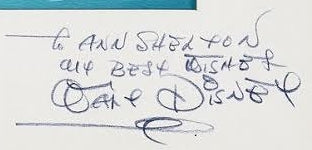 To ANN SHELTON
MY BEST WISHES
WALT DISNEY